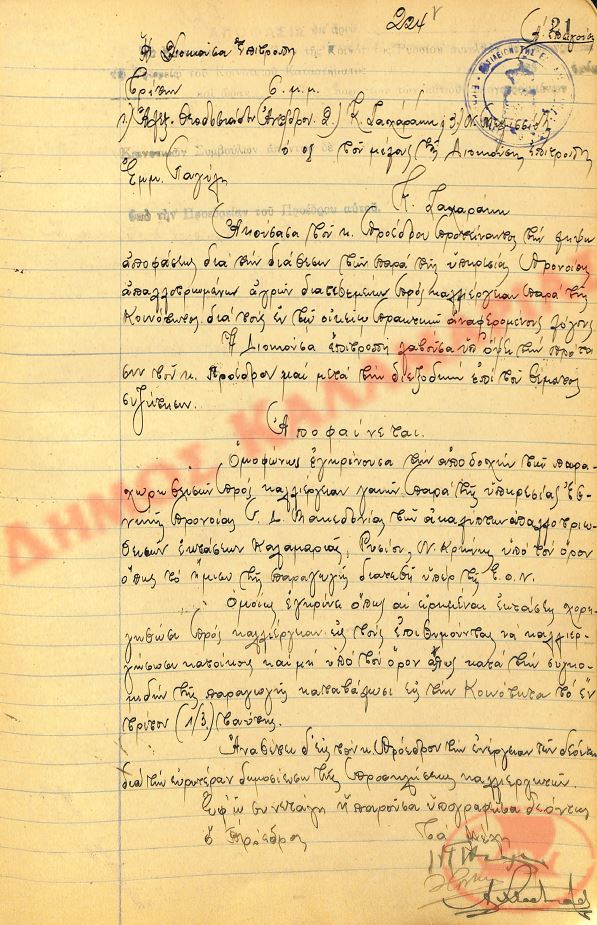 224
21
Ἡ Διοικοῦσα Ἐπιτροπή
Κ. Σαχαράκη
ὁ
τοῦ μέλους τῆς Διοικούσης Ἐπιτροπῆς
Ἐμμ. Παγύλη
ὑπὸ τὴν Προεδρείαν τοῦ Προέδρου αὐτοῦ.
Κ. Σαχαράκη
Ἀκούσασα τοῦ κ. Προέδρου προτείναντος τὴν ψήφισιν
ἀποφάσεως διὰ τὴν διάθεσιν τῶν παρὰ τῆς ὑπηρεσίας Προνοίας
ἀπαλλοτριωμένων ἀγρῶν διατεθεμένων πρὸς καλλιέργειαν παρὰ τῆς
Κοινότητος διὰ τοὺς ἐν τῷ οἰκείῳ πρακτικῷ ἀναφερομένους λόγους
Ἡ Διοικοῦσα ἐπιτροπὴ λαβοῦσα ὑπ' ὄψει τὴν πρότα
σιν τοῦ κ. Προέδρου καὶ μετὰ τὴν διεξοδικὴν ἐπὶ τοῦ θέματος
συζήτησιν.
Ἀποφαίνεται.
Ὁμοφώνως ἐγκρίνουσα τὴν ἀποδοχὴν τῶν παρα
χωρηθεισῶν πρὸς καλλιέργειαν γαιῶν παρὰ τῆς ὑπηρεσίας Ἐθ
νικῆς Προνοίας Γ. Δ. Μακεδονίας τῶν ἀκαλύπτων ἀπαλλοτριω
θεισῶν ἐκτάσεων Καλαμαριᾶς, Ρυσίου, Ν. Κρήνης ὑπὸ τὸν ὅρον
ὅπως τὸ ἥμισυ τῆς παραγωγῆς διατεθῇ ὑπὲρ τῆς Ε.Ο.Ν.
Ὁμοίως ἐγκρίνει ὅπως αἱ εἰρημέναι ἐκτάσεις χορη
γηθῶσι πρὸς καλλιέργειαν εἰς τοὺς ἐπιθυμοῦντας νὰ καλλιερ
γήσωσιν κατοίκους καὶ μὴ ὑπὸ τὸν ὅρον ὅπως κατὰ τὴν συγκο
μιδὴν τῆς παραγωγῆς καταβάλωσι εἰς τὴν Κοινότητα τὸ ἓν
τρίτον (1/3) ταύτης.
Ἀναθέτει δ' εἰς τὸν κ. Πρόεδρον τὴν ἐνέργειαν τῶν δεόντων
διὰ τὴν εὐρυτέραν δημοσίευσιν τῆς προσκλήσεως καλλιεργητῶν.
Ἐφ' ᾧ συνετάγη ἡ παροῦσα ὑπογραφεῖσα δεόντως
Ὁ Πρόεδρος Τὰ μέλη
ΔΗΜΟΣ ΚΑΛΑΜΑΡΙΑΣ